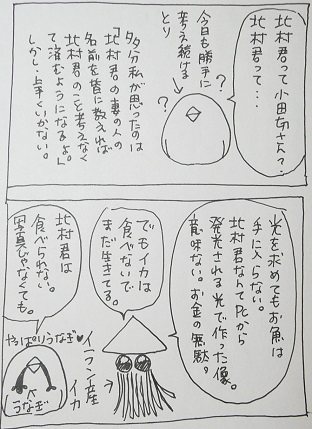 北村君って小田切さん?
北村君って・・・
?
?
今日も勝手に
考え続ける
とり
多分私が思ったのは
「北村君の妻の人の
名前を皆に教えれば
北村君のこと考えなく
て済むようになるよ。」
しかし、上手くいかない。
光を求めてもお魚は
手に入らない。
北村君なんてPCから
発光される光で作った像。
意味ない。お金の無駄。
でもイカは
食べないで
まだ生きてる。
イラン産
イカ
北村君は
食べられない。
写真じゃなくても。
やっぱりうなぎ♥
うなぎ